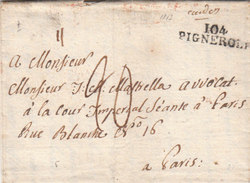 104
PIGNEROL
A Monsieur
Monsieur J. Ch. Mastrella Avvocat
à la Cour Imperial Séante à Paris
Rue Blanche N.ro 16
à Paris: